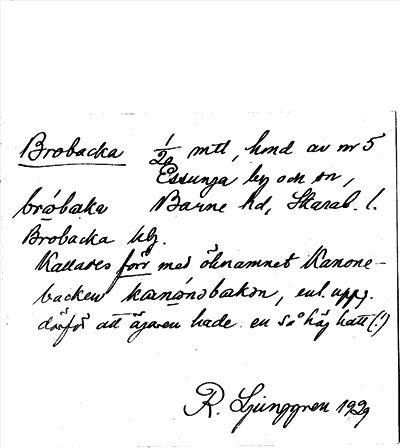 Brobacka 1/20 mtl, hmd av nr 5
Essunga by och sn,
bròbaka Barne hd, Skarab. l.
Brobacka lhj.
Kallades förr med öknamnet Kanone-
backen kanónsbakən, enl. uppg.
därför att ägaren hade en så hög hatt (!)
R. Ljunggren 1929